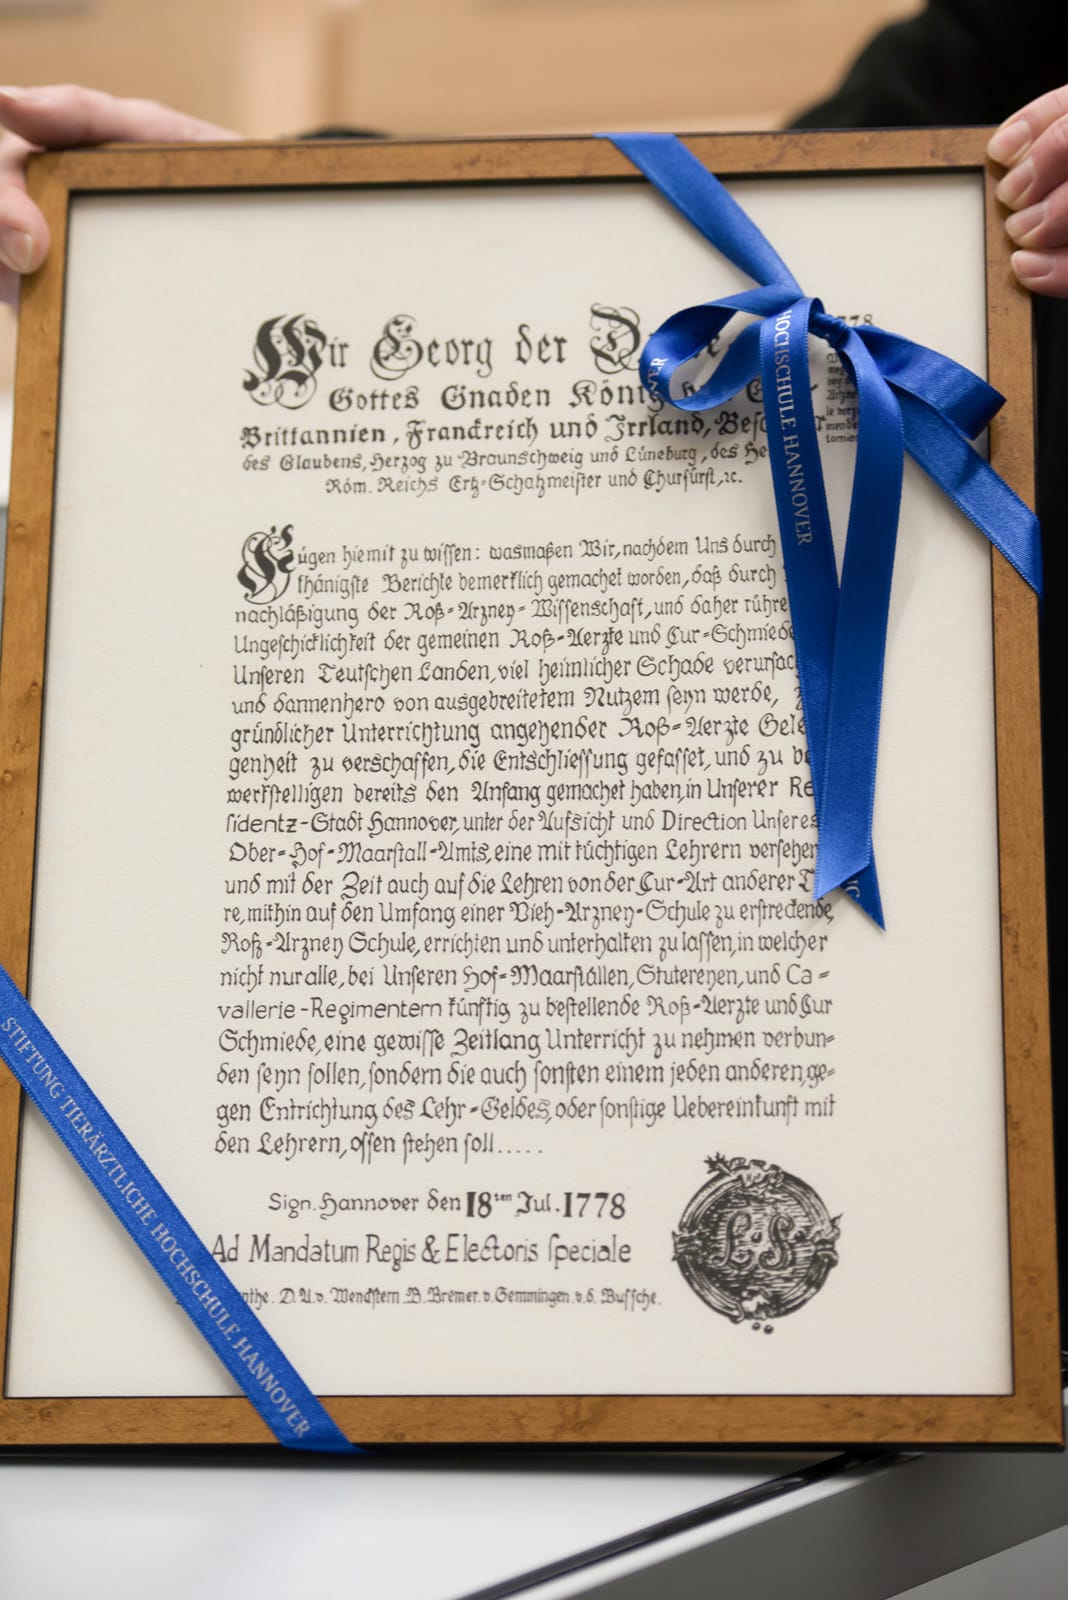 Wir Georg der
Gottes Gnaden König
Brittannien, Franckreich und Irrland,
des Glaubens, Herzog zu Braunschweig und Lüneburg, des
Röm. Reichs Ertz-Schatzmeister und Churfürst, ꝛc.
Fügen hiemit zu wissen: wasmaßen Wir, nachdem Uns durch
thänigste Berichte bemerklich gemachet worden, daß durch
nachläßigung der Roß-Arzney-Wissenschaft, und daher rühre
Ungeschicklichkeit der gemeinen Roß-Aerzte und Cur-Schmiede
Unseren Teutschen Landen, viel heimlicher Schade verursac
und dannenhero von ausgebreitetem Nutzem seyn werde,
gründlicher Unterrichtung angehender Roß-Aerzte Gele
genheit zu verschaffen, die Entschliessung gefasset, und zu be
werkstelligen bereits den Anfang gemachet haben, in Unserer Re
sidentz-Stadt Hannover, unter der Aufsicht und Direction Unseres
Ober-Hof-Maarstall-Amts, eine mit tüchtigen Lehrern versehen
und mit der Zeit auch auf die Lehren von der Cur-Art anderer T
re, mithin auf den Umfang einer Vieh-Arzney-Schule zu erstreckende,
Roß-Arzney Schule, errichten und unterhalten zu lassen, in welcher
nicht nur alle, bei Unseren Hof-Maarställen, Stutereyen, und Ca-
vallerie-Regimentern künftig zu bestellende Roß-Aerzte und Cur
Schmiede, eine gewisse Zeitlang Unterricht zu nehmen verbun-
den seyn sollen, sondern die auch sonsten einem jeden anderen, ge-
gen Entrichtung des Lehr-Geldes, oder sonstige Uebereinkunft mit
den Lehrern, offen stehen soll.....
Sign. Hannover den 18ten Jul. 1778
Ad Mandatum Regis & Electoris speciale
D. U. v. Wenckstern B. Bremer. v. Gemmingen. v. d. Bussche.
L. S.
HOCHSCHULE HANNOVER
STIFTUNG TIERÄRZTLICHE HOCHSCHULE HANNOVER